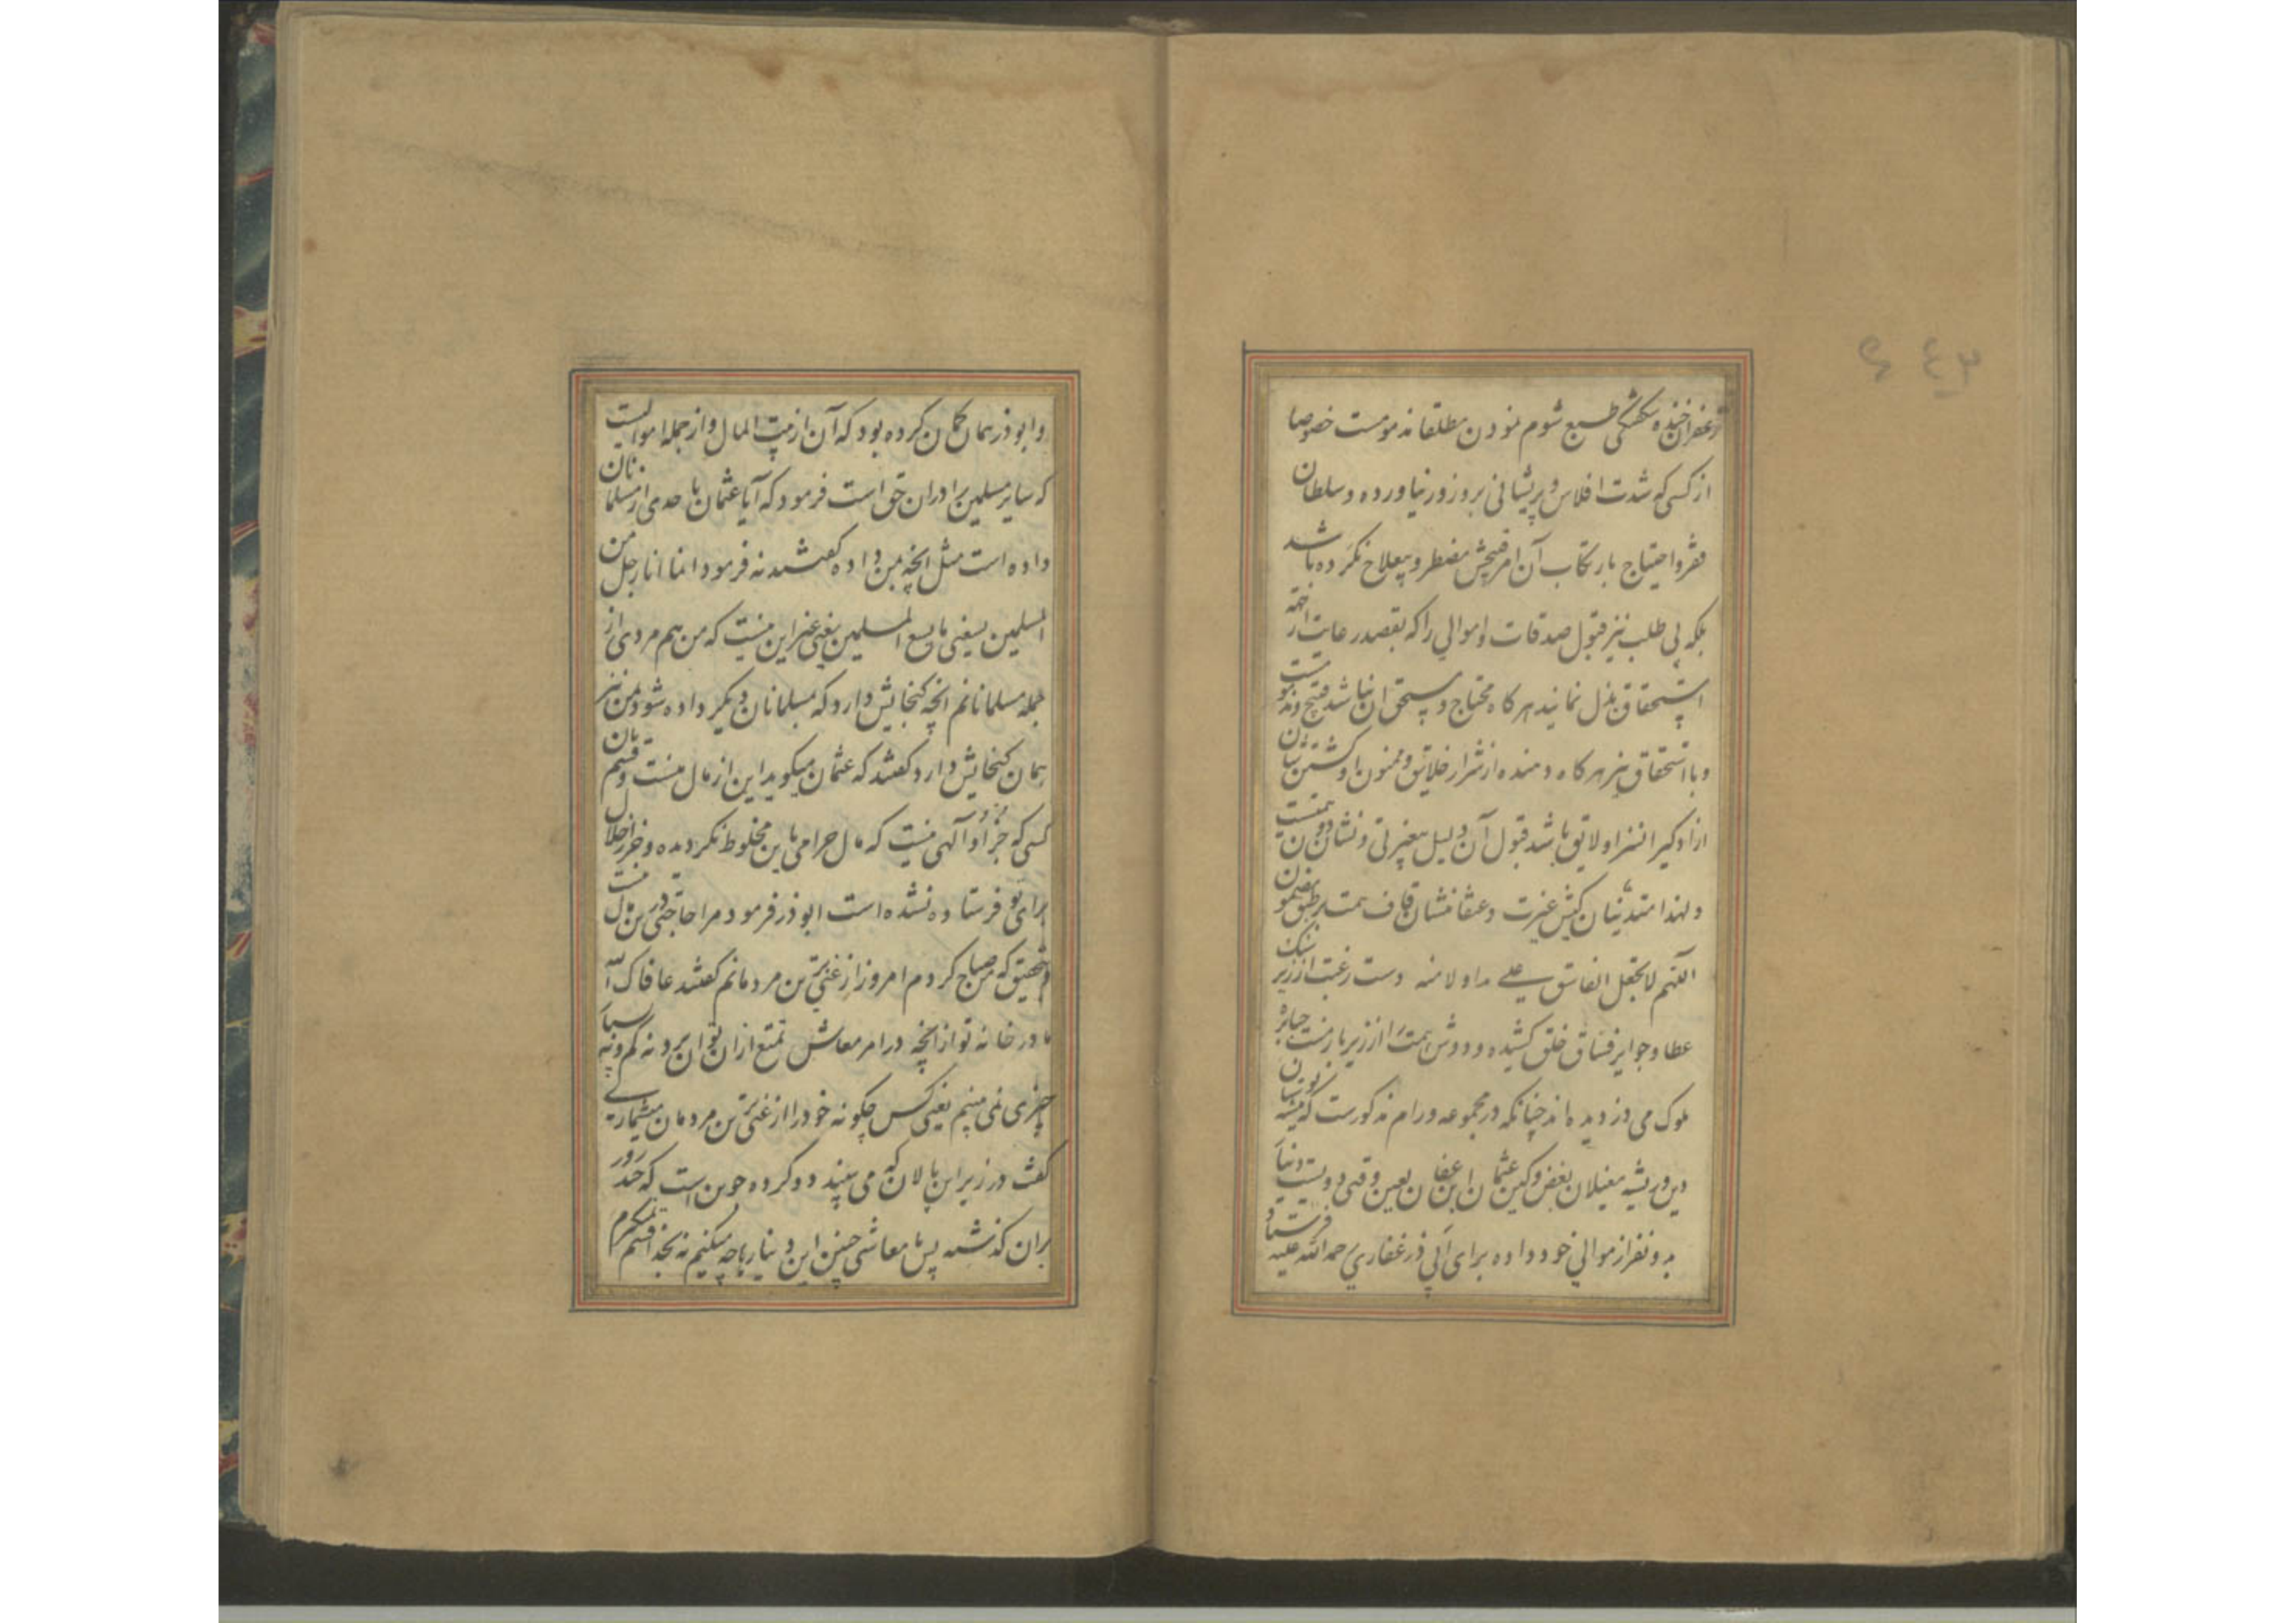 زعفران خنده شکفتگی طبع شوم نمودن مطلقا مذمومست خصوصا
از کسی که شدت افلاس و پریشانی بروز ور نیاورده و سلطان
فقر و احتیاج بارتکاب آن امر قبیحش مضطر و بیعلاج نکرده باشد
بلکه بی طلب نیز قبول صدقات و اموالی را که بقصد رعایت
استحقاق بذل نمایند هر کاه محتاج و مستحق ان نباشد قبیح
و با استحقاق نیز هر کاه دهنده از شرار خلایق و ممنون او کشتن
ازاد کیر انسزاو لایق باشد قبول آن دلیل بیغیرتی و نشان دون همتیست
و لهذا متدینان کیش غیرت و عنقا منشان قاف همت بر طبق مضمون
اللهم لا تجعل لفاسق علی یدا و لا منه دست رغبت از زیر سنک
عطا و جوایز فساق خلق کشیده و دوش همت را از زیر بار منت جبابره
ملوک می دزدیده اند چنانکه در مجموعه ورام مذکورست که
دین و ریشه مغیلان بغض و کین عثمان ابن عفان لعین وقتی دویست دینار
بدو نفر از موالی خود داده برای ابی ذر غفاری رحمه الله علیه فرستاد
و ابوذر همان کمان کرده بود که آن از بیت المال و از جمله اموالیست
که سایر مسلمین را دران حق است فرمود که آیا عثمان باحدی از مسلمانان
داده است مثل انچه بمن داده کفتند نه فرمود انما انا رجل من
المسلمین یسعنی ما یسع المسلمین یعنی غیر این نیست که من هم مردی از
جمله مسلمانانم انچه کنجایش دارد که بمسلمانان دیکر داده شود بمن نیز
همان کنجایش دارد کفتند که عثمان میکوید این از مال منست و قسم بان
کسی که جز او آلهی نیست که مال حرامی باین مخلوط نکردیده و جز از حلال
برای تو فرستاده نشده است ابوذر فرمود مرا حاجتی درین مال نیست
بتحقیق که من صباح کردم امروز از غنی ترین مردمانم کفتند عافاک الله
ما در خانه تو از انچه در امر معاش تمتع ازان توان برد نه کم و نه بسیار
چیزی نمی بینم یعنی پس چکونه خود را از غنی ترین مردمان میشماری
کفت در زیر این پالان که می بینید دو کرده جوین است که چند روز
بران کذشته پس با معاش چنین این دینار را چه میکنم نه بخدا قسم